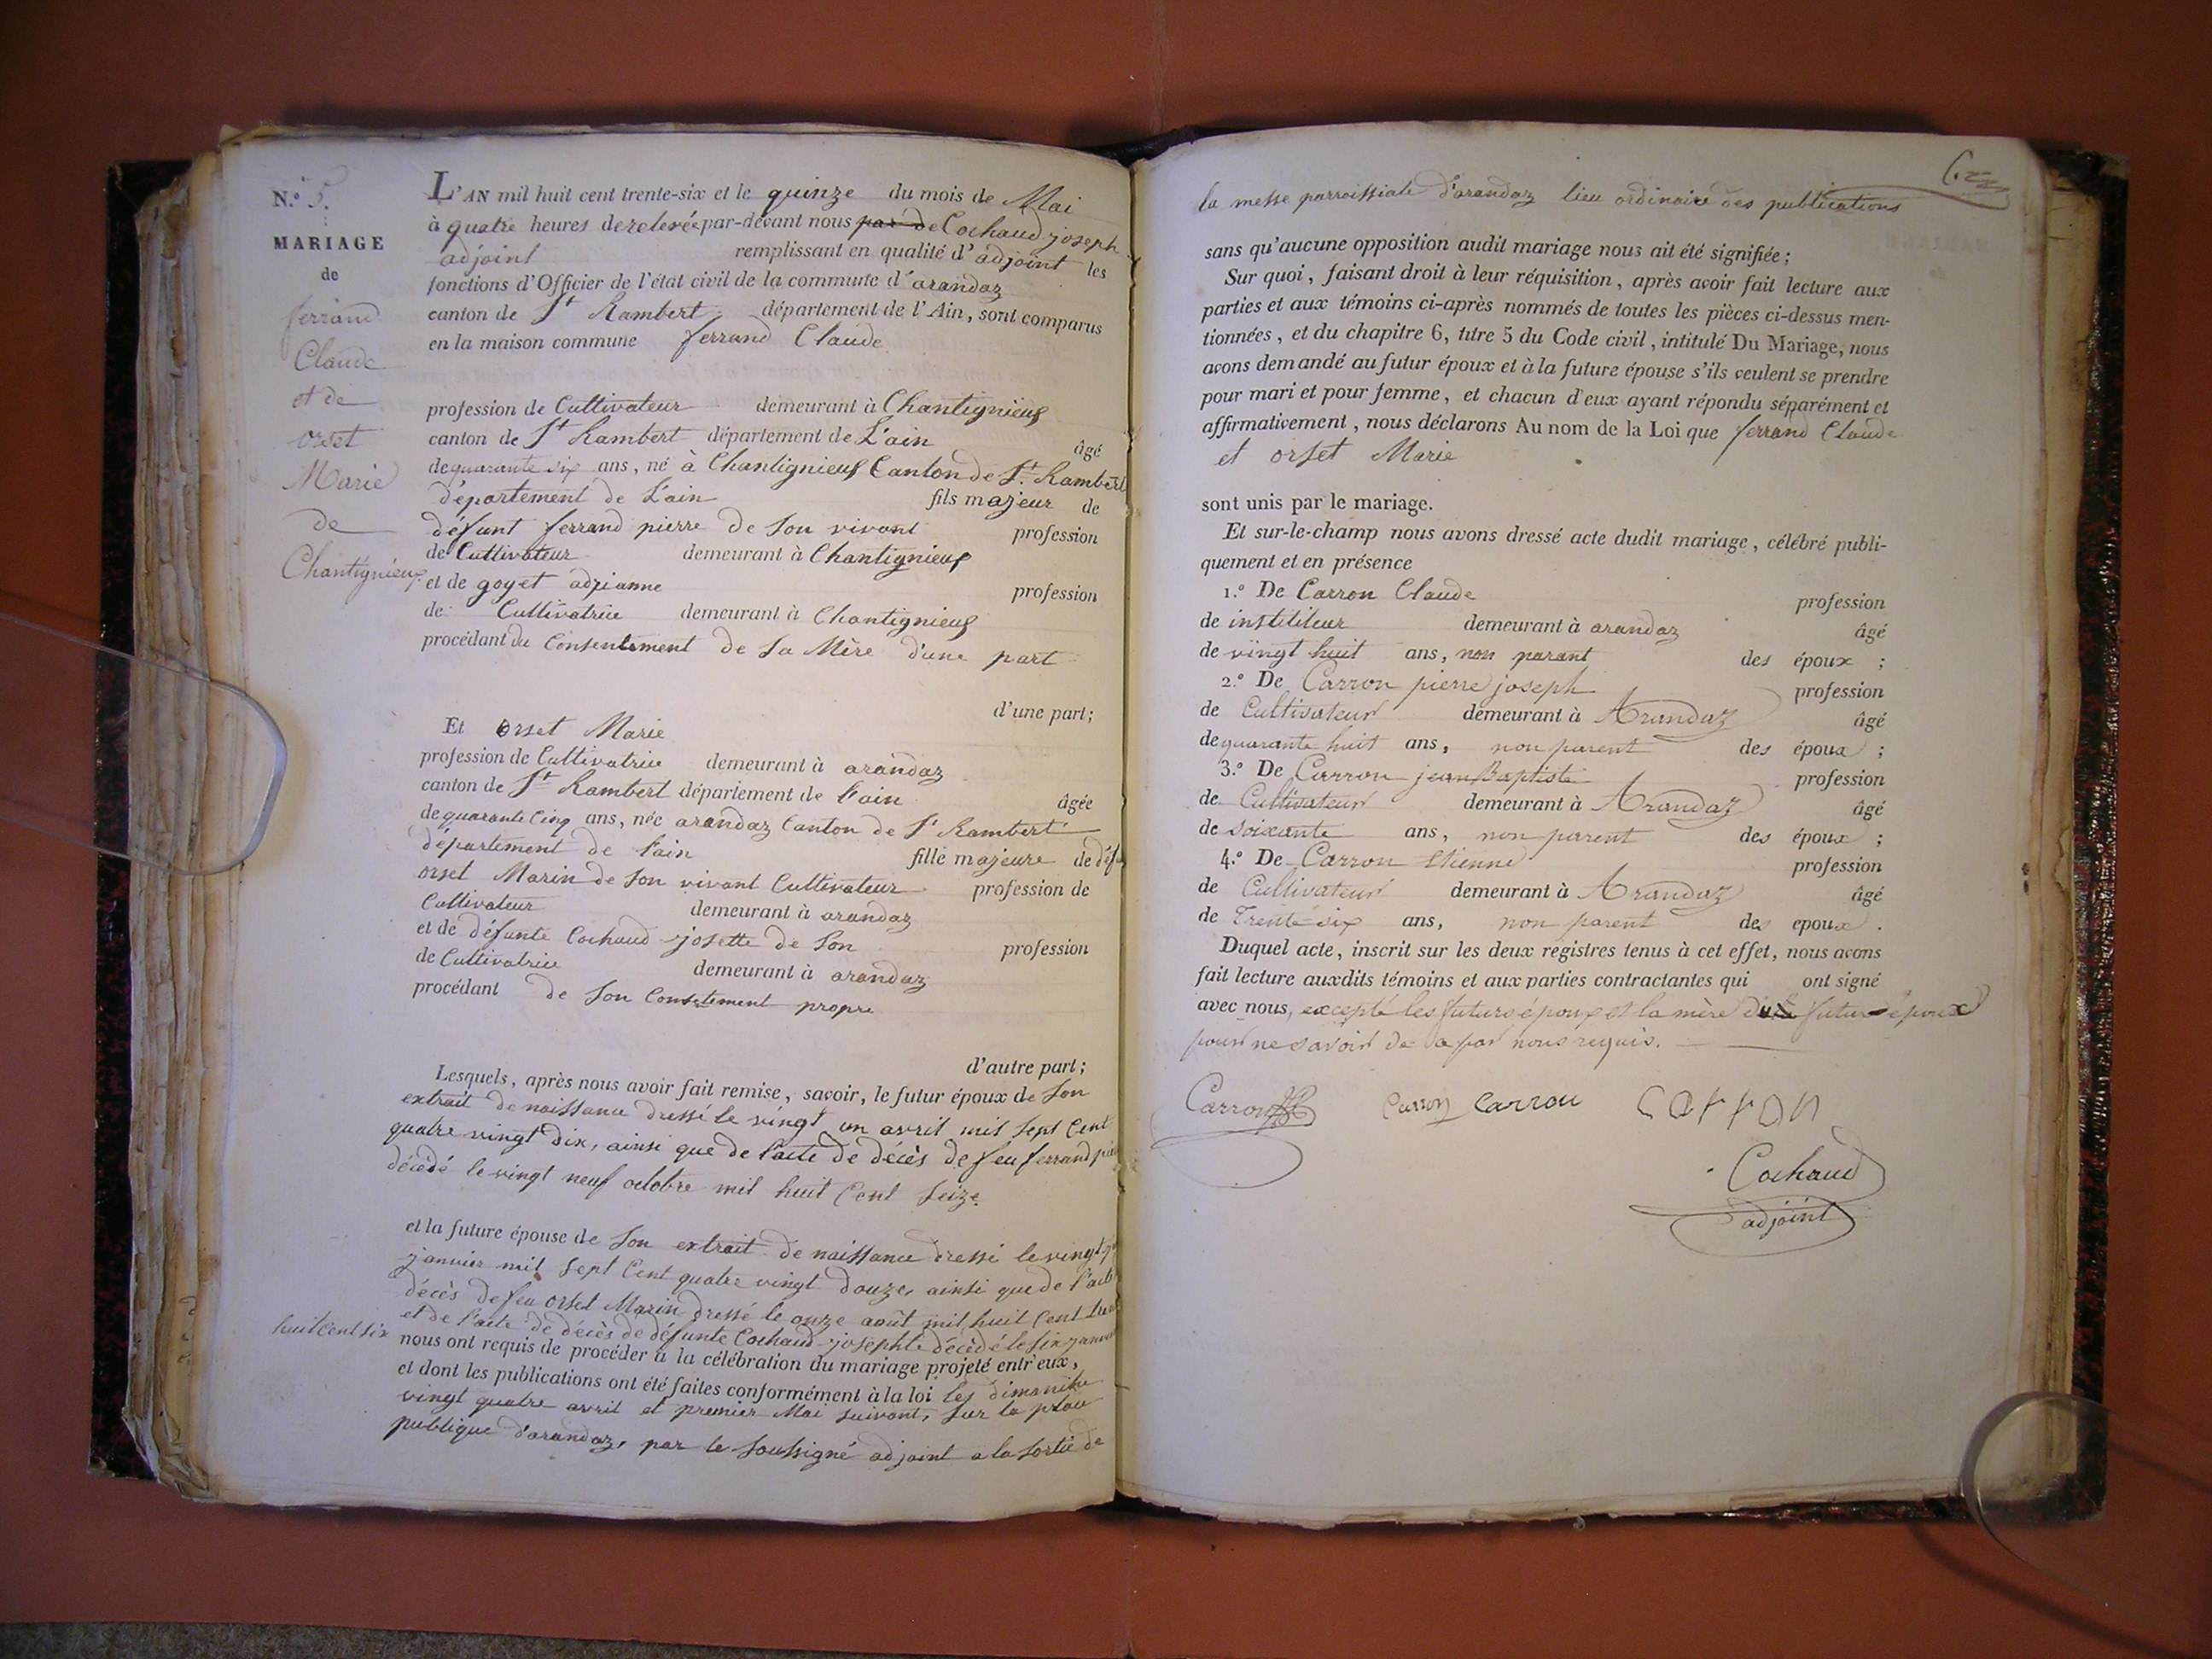 N.° 5.
MARIAGE
de
ferrand
Claude
et de
orset
Marie
de
Chantignieux
L'AN mil huit cent trente-six et le quinze du mois de Mai
à quatre heures de relevée par-devant nous par de Cochaud joseph
adjoint remplissant en qualité d'adjoint les
fonctions d'Officier de l'état civil de la commune d'arandaz
canton de St Rambert département de l'Ain, sont comparus
en la maison commune ferrand Claude
profession de Cultivateur demeurant à Chantignieux
canton de St Rambert département de L'ain âgé
de quarante six ans, né à Chantignieux Canton de St. Rambert
département de L'ain fils majeur de
défunt ferrand pierre de Son vivant profession
de Cultivateur demeurant à Chantignieux
et de goyet adrianne profession
de Cultivatrice demeurant à Chantignieux
procédant du Consentement de Sa Mère d'une part
d'une part;
Et orset Marie
profession de Cultivatrice demeurant à arandaz
canton de St Rambert département de l'ain âgée
de quarante Cinq ans, née arandaz Canton de St Rambert
département de l'ain fille majeure de
orset Marin de Son vivant Cultivateur profession de
Cultivateur demeurant à arandaz
et de défunte Cochaud josette de Son profession
de Cultivatrice demeurant à arandaz
procédant de Son Consetement propre
d'autre part;
Lesquels, après nous avoir fait remise, savoir, le futur époux de Son
extrait de naissance dressé le vingt un avril mil Sept Cent
quatre vingt dix, ainsi que de l'acte de décès de feu ferrand
décédé le vingt neuf octobre mil huit Cent Seize
et la future épouse de Son extrait de naissance dressé le vingt
janvier mil Sept Cent quatre vingt douze, ainsi que de l'acte
décès de feu orset Marin dressé le onze août mil huit Cent
et de l'acte de décès de défunte Cochaud josephte décédé le Six
huit Cent Six
nous ont requis de procéder à la célébration du mariage projeté entr'eux,
et dont les publications ont été faites conformément à la loi les dimanche
vingt quatre avril et premier Mai suivant, Sur la place
publique d'arandaz, par le Soussigné adjoint a la Sortie de
la messe parroissiale d'arandaz lieu ordinaire des publications
sans qu'aucune opposition audit mariage nous ait été signifiée;
Sur quoi, faisant droit à leur réquisition, après avoir fait lecture aux
parties et aux témoins ci-après nommés de toutes les pièces ci-dessus men-
tionnées, et du chapitre 6, titre 5 du Code civil, intitulé Du Mariage, nous
avons demandé au futur époux et à la future épouse s'ils veulent se prendre
pour mari et pour femme, et chacun d'eux ayant répondu séparément et
affirmativement, nous déclarons Au nom de la Loi que ferrand Claude
et orset Marie
sont unis par le mariage.
Et sur-le-champ nous avons dressé acte dudit mariage, célébré publi-
quement et en présence
1.° De Carron Claude profession
de instititeur demeurant à arandaz âgé
de vingt huit ans, non parant des époux;
2.° De Carron pierre joseph profession
de Cultivateur demeurant à Arandaz âgé
de quarante huit ans, non parent des époux;
3.° De Carron jean Baptiste profession
de Cultivateur demeurant à Arandaz âgé
de Soixante ans, non parent des époux;
4.° De Carron Etienne profession
de Cultivateur demeurant à Arandaz âgé
de Trente-six ans, non parent des epoux.
Duquel acte, inscrit sur les deux registres tenus à cet effet, nous avons
fait lecture auxdits témoins et aux parties contractantes qui ont signé
avec nous, excepté les futurs époux et la mère du futur époux
pour ne savoir de par nous requis.
Carron Carron Carrou Carron
Cochaud
adjoint